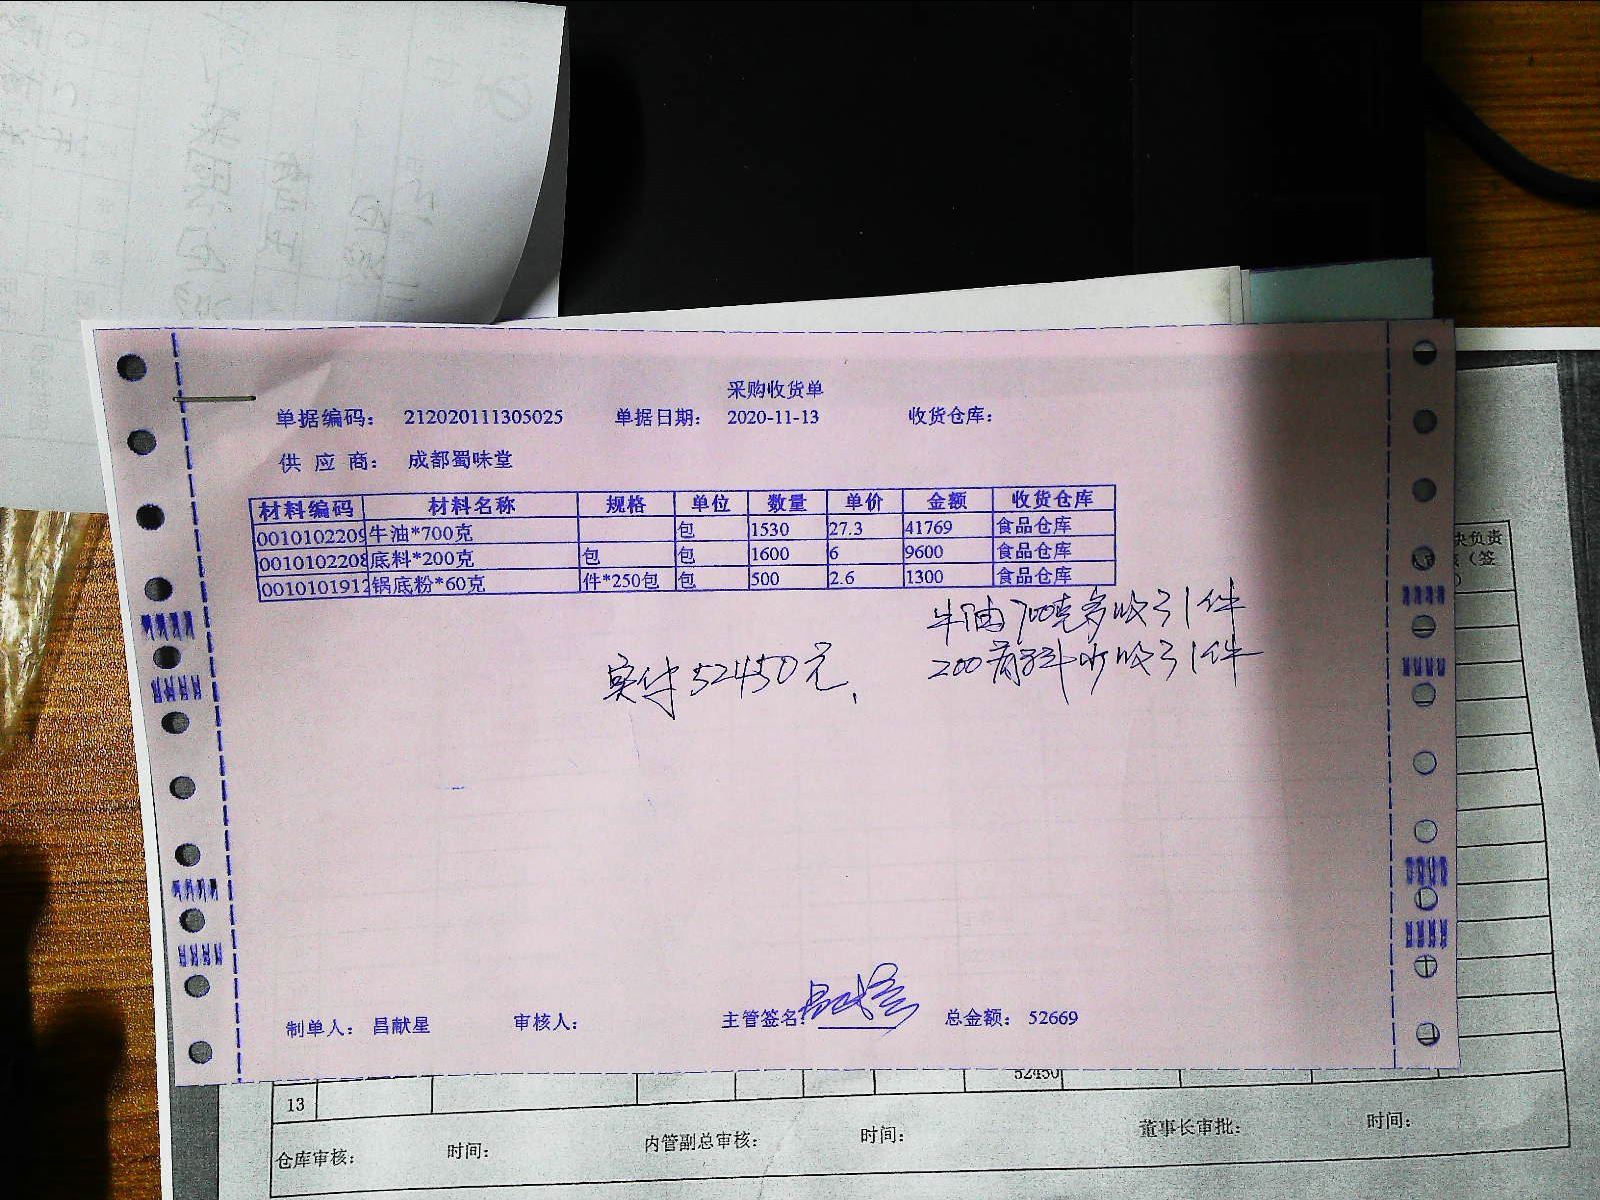 采购收货单
单据编码: 212020111305025 单据日期: 2020-11-13 收货仓库:
供 应 商: 成都蜀味堂
材料编码 材料名称 规格 单位 数量 单价 金额 收货仓库
0010102209 牛油*700克 包 1530 27.3 41769 食品仓库
0010102208 底料*200克 包 包 1600 6 9600 食品仓库
0010101912 锅底粉*60克 件*250包 包 500 2.6 1300 食品仓库
牛油700克多收了1件
实付52450元.
200克底料少收了1件
制单人: 昌献星 审核人: 主管签名: 昌献星 总金额: 52669
52450
13
仓库审核: 时间: 内管副总审核: 时间: 董事长审批: 时间: